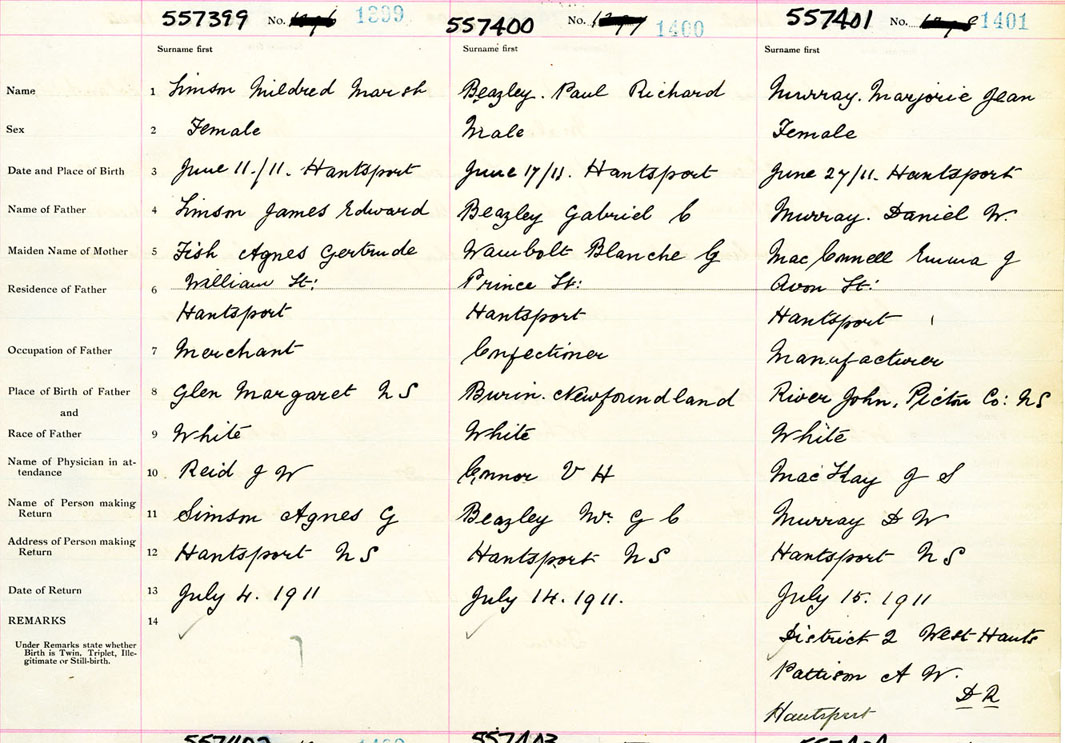 557399 No. 1399 557400 No. 1400 557401 No. 1401
Surname first Surname first Surname first
Name 1 Simson Mildred Marsh Beazley. Paul Richard Murray. Marjorie Jean
Sex 2 Female Male Female
Date and Place of Birth 3 June 11./11. Hantsport June 17/11. Hantsport June 27/11. Hantsport
Name of Father 4 Simson James Edward Beazley Gabriel C Murray. Daniel W.
Maiden Name of Mother 5 Fish Agnes Gertrude Wambolt Blanche G MacConnell Emma J
Residence of Father 6 William St: Prince St: Avon St:
Hantsport Hantsport Hantsport
Occupation of Father 7 Merchant Confectioner Manufacturer
Place of Birth of Father 8 Glen Margaret N S Burin. Newfoundland River John, Pictou Co: NS
and
Race of Father 9 White White White
Name of Physician in at-
tendance 10 Reid J W Connor V H MacKay J S
Name of Person making
Return 11 Simson Agnes G Beazley Mr. G C Murray D W
Address of Person making
Return 12 Hantsport N S Hantsport N S Hantsport N S
Date of Return 13 July 4. 1911 July 14. 1911. July 15. 1911
REMARKS 14 District 2 West Hants
Under Remarks state whether
Birth is Twin, Triplet, Ille-
gitimate or Still-birth.
Pattison A W.
D R
Hantsport